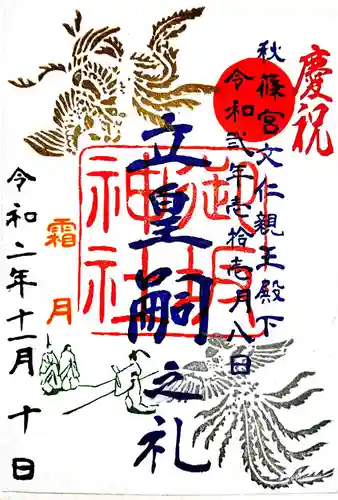 慶祝
秋篠宮文仁親王殿下
令和弐年壱拾壱月八日
立皇嗣之礼
神社
霜月
令和二年十一月十日